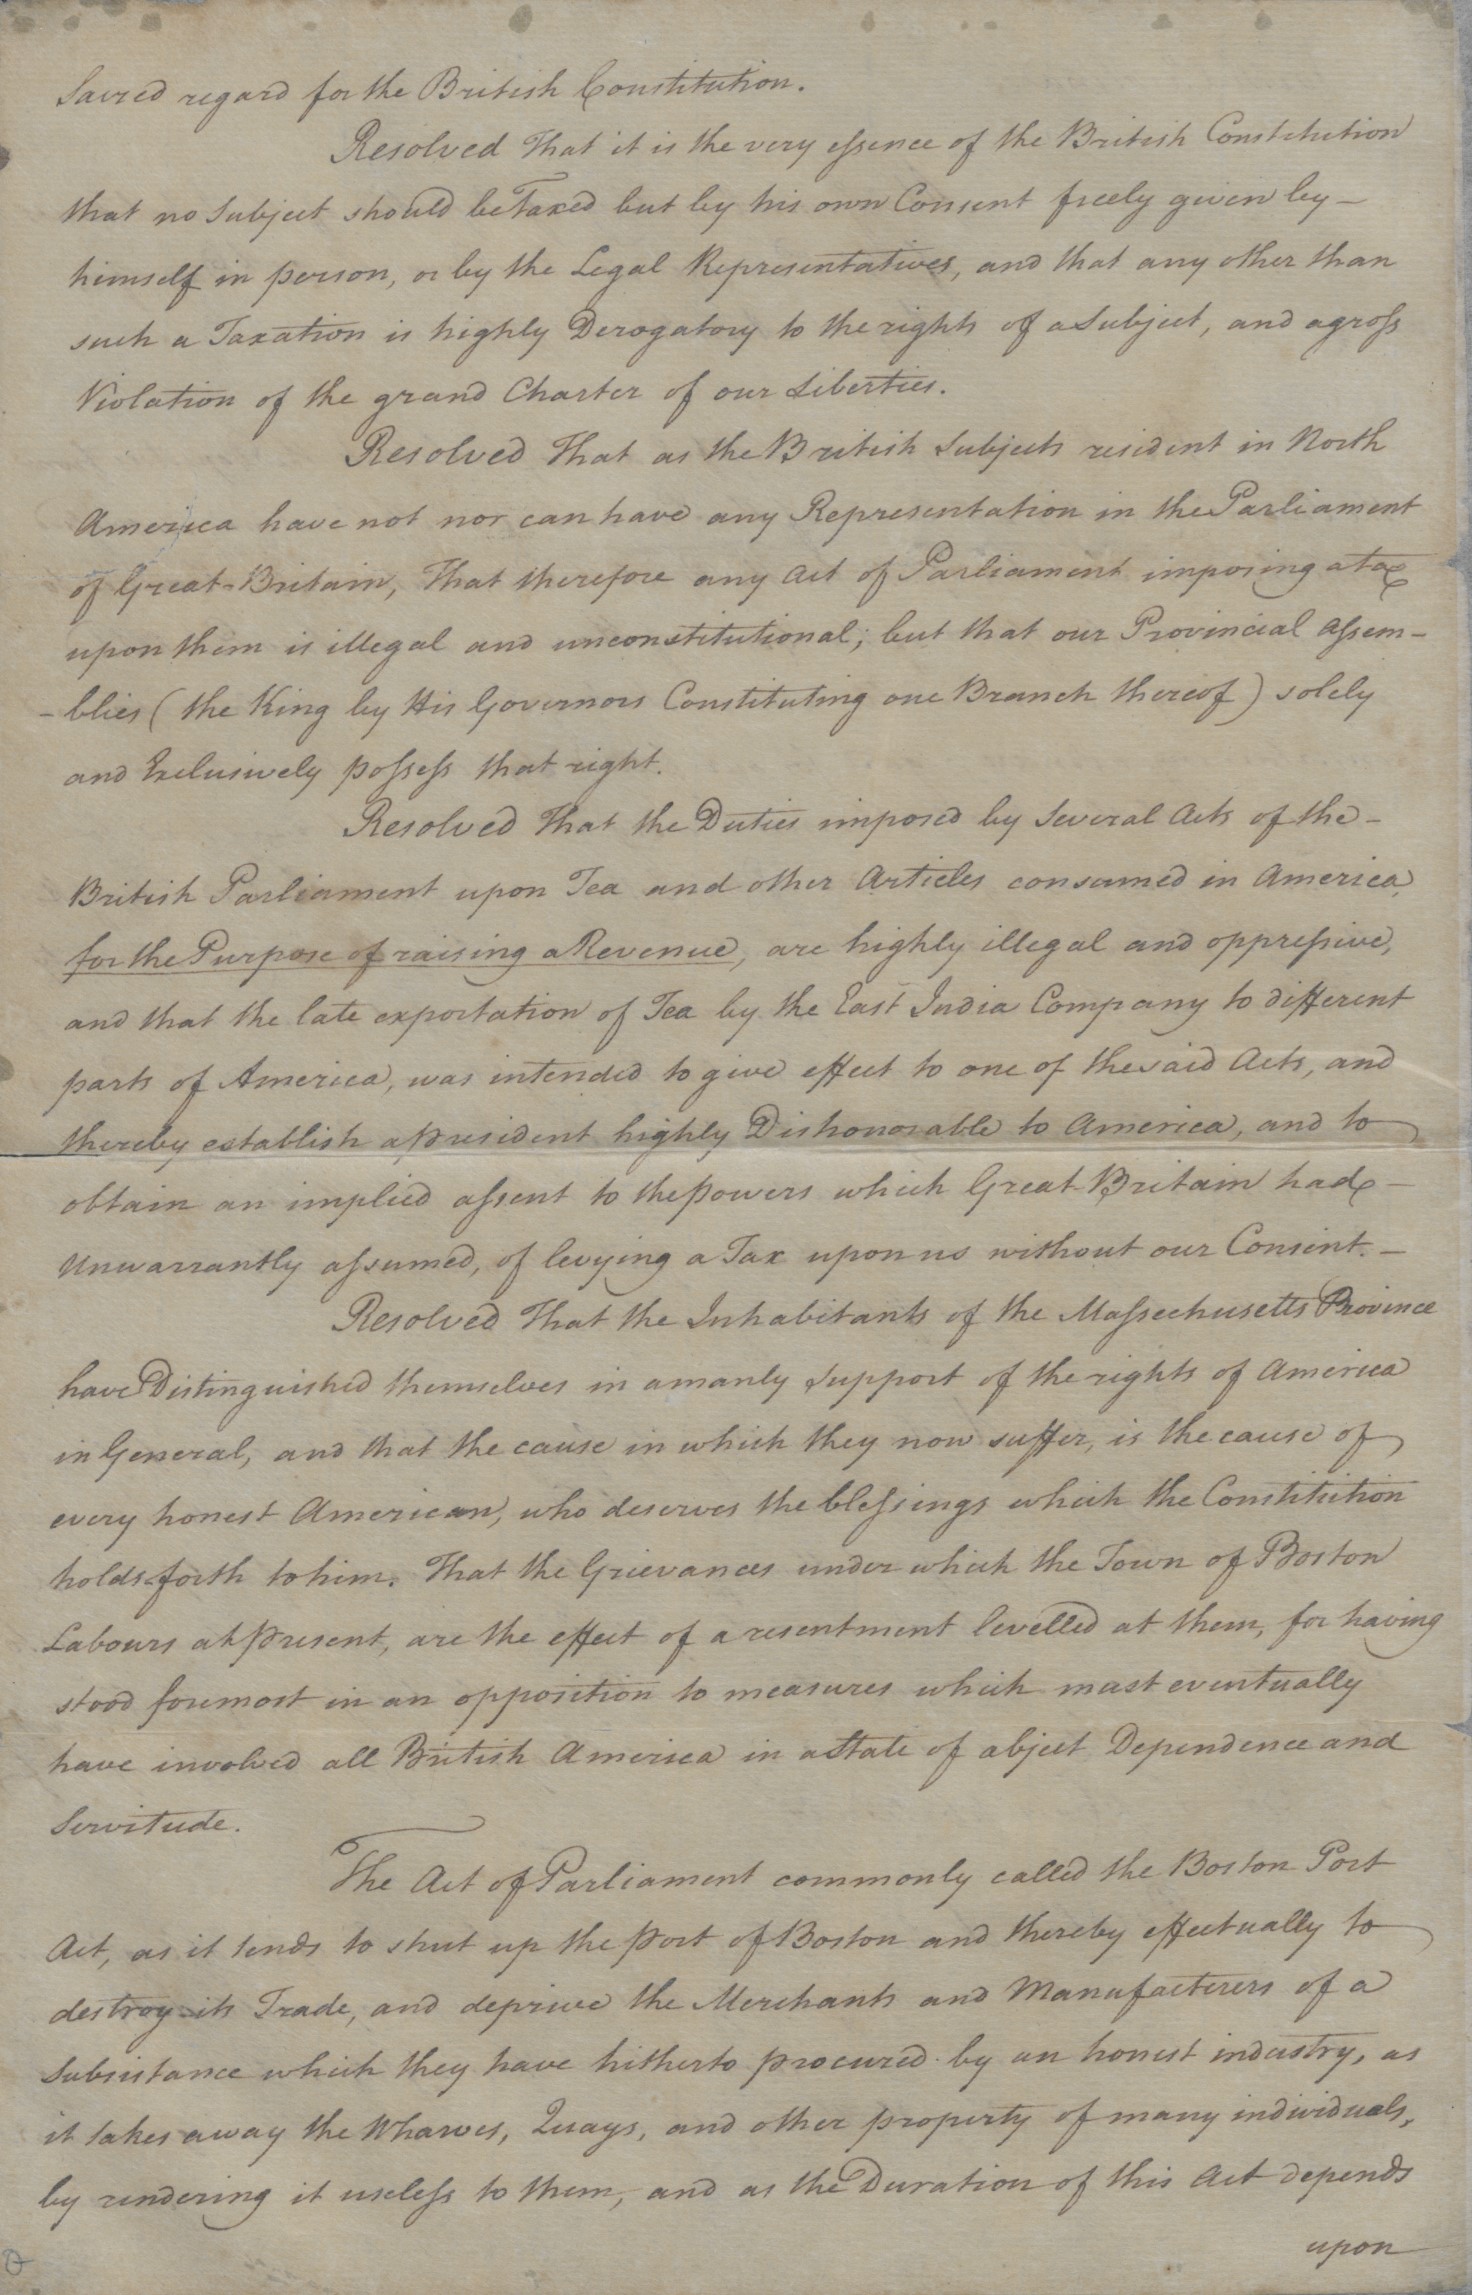 Sacred regard for the British Constitution.
Resolved That it is the very essence of the British Constitution
that no Subject should be Taxed but by his own Consent freely given by –
himself in person, or by the Legal Representatives, and that any other than
such a Taxation is highly Derogatory to the rights of a Subject, and a gross
Violation of the grand Charter of our Liberties.
Resolved That as the British Subjects resident in North
America have not nor can have any Representation in the Parliament
of Great-Britain, That therefore any Act of Parliament imposing a tax
upon them is illegal and unconstitutional; but that our Provincial Assem-
-blies (the King by His Governors Constituting one Branch thereof) solely
and Exclusively possess that right.
Resolved That the Duties imposed by Several Acts of the –
British Parliament upon Tea and other Articles consumed in America,
for the Purpose of raising a Revenue, are highly illegal and oppressive,
and that the late exportation of Tea by the East India Company to different
parts of America, was intended to give effect to one of the said Acts, and
thereby establish a president highly Dishonorable to America, and to
obtain an implied assent to the powers which Great-Britain had –
Unwarrantly assumed, of levying a Tax upon us without our Consent. –
Resolved That the Inhabitants of the Massechusetts Province
have Distinguished themselves in a manly Support of the rights of America
in General, and that the cause in which they now suffer, is the cause of
every honest American, who deserves the blessings which the Constitution
holds forth to him. That the Grievances under which the Town of Boston
Labours at present, are the effect of a resentment levelled at them, for having
stood foremost in an opposition to measures which must eventually
have involved all British America in a State of abject Dependence and
Servitude.
The Act of Parliament commonly called the Boston Port
Act, as it tends to shut up the port of Boston and thereby effectually to
destroy its Trade, and deprive the Merchants and Manufacturers of a
Subsistance which they have hitherto procured by an honest industry, as
it takes away the Wharves, Quays, and other property of many individuals,
by rendering it useless to them, and as the Duration of this Act depends
upon